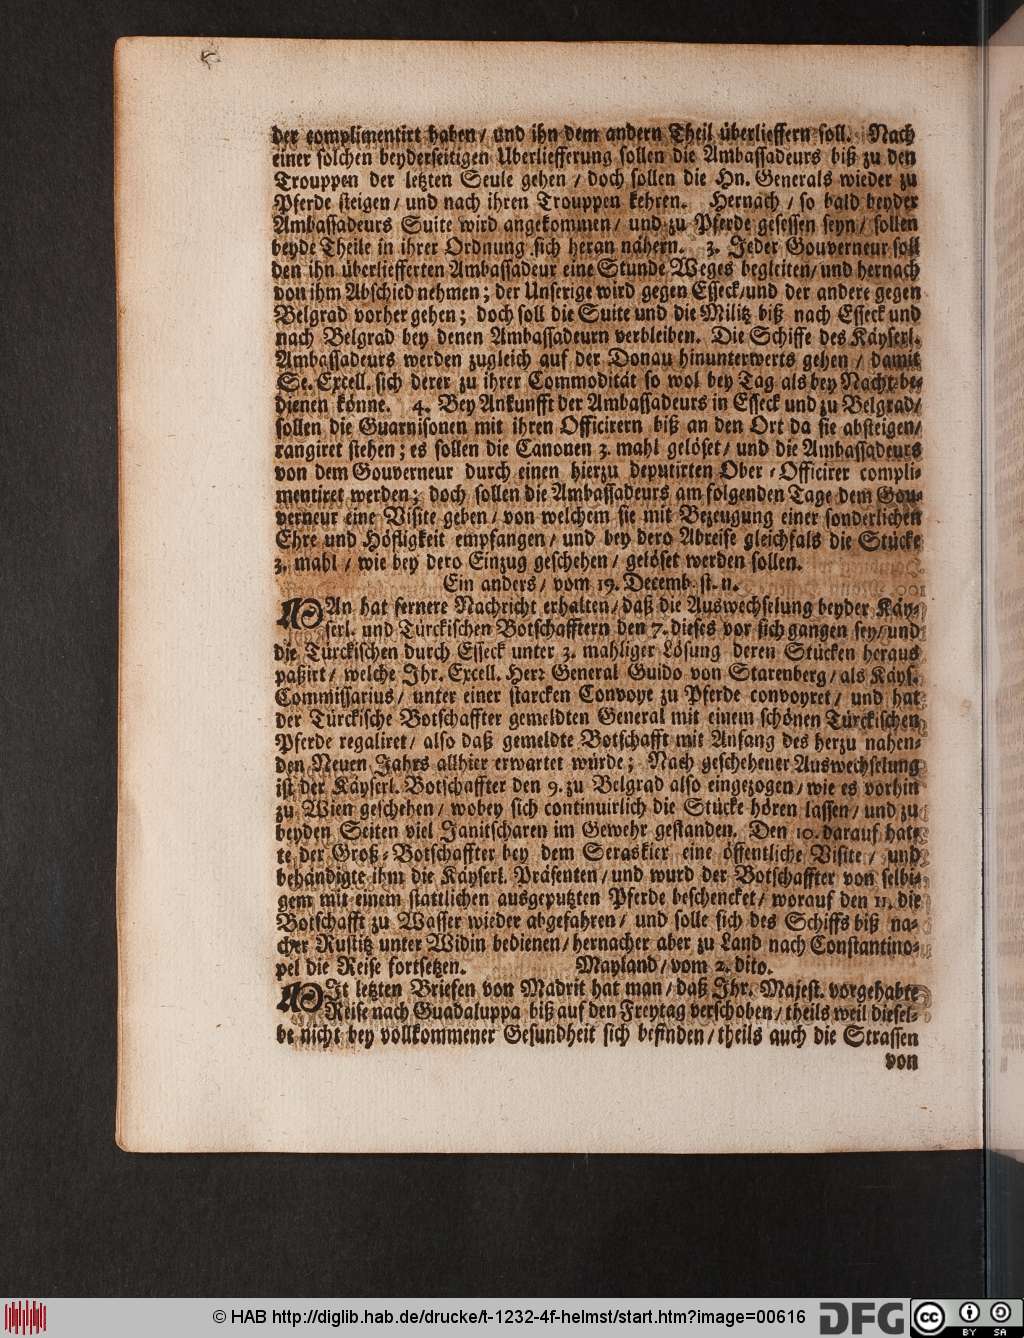 der complimentirt haben / und ihn dem andern Theil überlieffern soll. Nach
einer solchen beyderseitigen Uberliefferung sollen die Ambassadeurs biß zu den
Trouppen der letzten Seule gehen / doch sollen die Hn. Generals wieder zu
Pferde steigen / und nach ihren Trouppen kehren. Hernach / so bald beyder
Ambassadeurs Suite wird angekommen / und zu Pferde gesessen seyn / sollen
beyde Theile in ihrer Ordnung sich heran nähern. 3. Jeder Gouverneur soll
den ihn überliefferten Ambassadeur eine Stunde Weges begleiten / und hernach
von ihm Abschied nehmen; der Unserige wird gegen Esseck / und der andere gegen
Belgrad vorher gehen; doch soll die Suite und die Militz biß nach Esseck und
nach Belgrad bey denen Ambassadeurn verbleiben. Die Schiffe des Käyserl.
Ambassadeurs werden zugleich auf der Donau hinunterwerts gehen / damit
Se. Excell. sich derer zu ihrer Commodität so wol bey Tag als bey Nacht be-
dienen könne. 4. Bey Ankunfft der Ambassadeurs in Esseck und zu Belgrad /
sollen die Guarnisonen mit ihren Officirern biß an den Ort da sie absteigen /
rangiret stehen; es sollen die Canonen 3. mahl gelöset / und die Ambassadeurs
von dem Gouverneur durch einen hierzu deputirten Ober-Officirer compli-
mentiret werden; doch sollen die Ambassadeurs am folgenden Tage dem Gou-
verneur eine Visite geben / von welchem sie mit Bezeugung einer sonderlichen
Ehre und Höfligkeit empfangen / und bey dero Abreise gleichfals die Stücke
3. mahl / wie bey dero Einzug geschehen / gelöset werden sollen.
Ein anders / vom 19. Decemb. st. n.
MAn hat fernere Nachricht erhalten / daß die Auswechselung beyder Käy-
serl. und Türckischen Botschafftern den 7. dieses vor sich gangen sey / und
die Türckischen durch Esseck unter 3. mahliger Lösung deren Stücken heraus
paßirt / welche Ihr. Excell. Herr General Guido von Starenberg / als Käys.
Commissarius / unter einer starcken Convoye zu Pferde convoyret / und hat
der Türckische Botschaffter gemeldten General mit einem schönen Türckischen
Pferde regaliret / also daß gemeldte Botschafft mit Anfang des herzu nahen-
den Neuen Jahrs allhier erwartet würde; Nach geschehener Auswechselung
ist der Käyserl. Botschaffter den 9. zu Belgrad also eingezogen / wie es vorhin
zu Wien geschehen / wobey sich continuirlich die Stücke hören lassen / und zu
beyden Seiten viel Janitscharen im Gewehr gestanden. Den 10. darauf hat-
te der Groß-Botschaffter bey dem Seraskier eine öffentliche Visite / und
behändigte ihm die Käyserl. Präsenten / und wurd der Botschaffter von selbi-
gem mit einem stattlichen ausgeputzten Pferde beschencket / worauf den 11. die
Botschafft zu Wasser wieder abgefahren / und solle sich des Schiffs biß na-
cher Rustitz unter Widin bedienen / hernacher aber zu Land nach Constantino-
pel die Reise fortsetzen. Mayland / vom 2. dito.
MIt letzten Briefen von Madrit hat man / daß Ihr. Majest. vorgehabte
Reise nach Guadaluppa biß auf den Freytag verschoben / theils weil diesel-
be nicht bey vollkommener Gesundheit sich befinden / theils auch die Strassen
von
© HAB http://diglib.hab.de/drucke/t-1232-4f-helmst/start.htm?image=00616
DFG
cc
BY SA